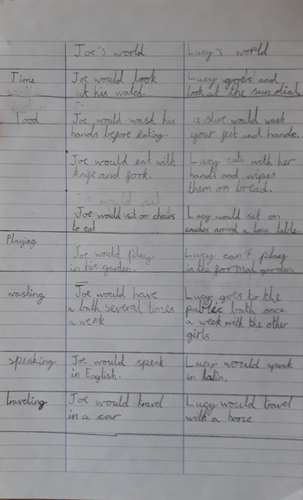 Joe's world Lucy's world
Time Joe would look Lucy goes and
at his watch look at the sundial
Food Joe would wash his a slave would wash
hands before eating. your feet and hands.
Joe would eat with Lucy eats with her
knife and fork. hands and wipes
them on bread.
Joe would sit on chairs Lucy would sit on
to eat couches around a low table.
Playing
Joe would play Lucy can't play
in his garden. in the formal gardens
washing Joe would have Lucy goes to the
a bath several times public bath once
a week a week with the other
girls
speaking Joe would speak Lucy would speak
in English. in Latin.
traveling Joe would travel Lucy would travel
in a car with a horse